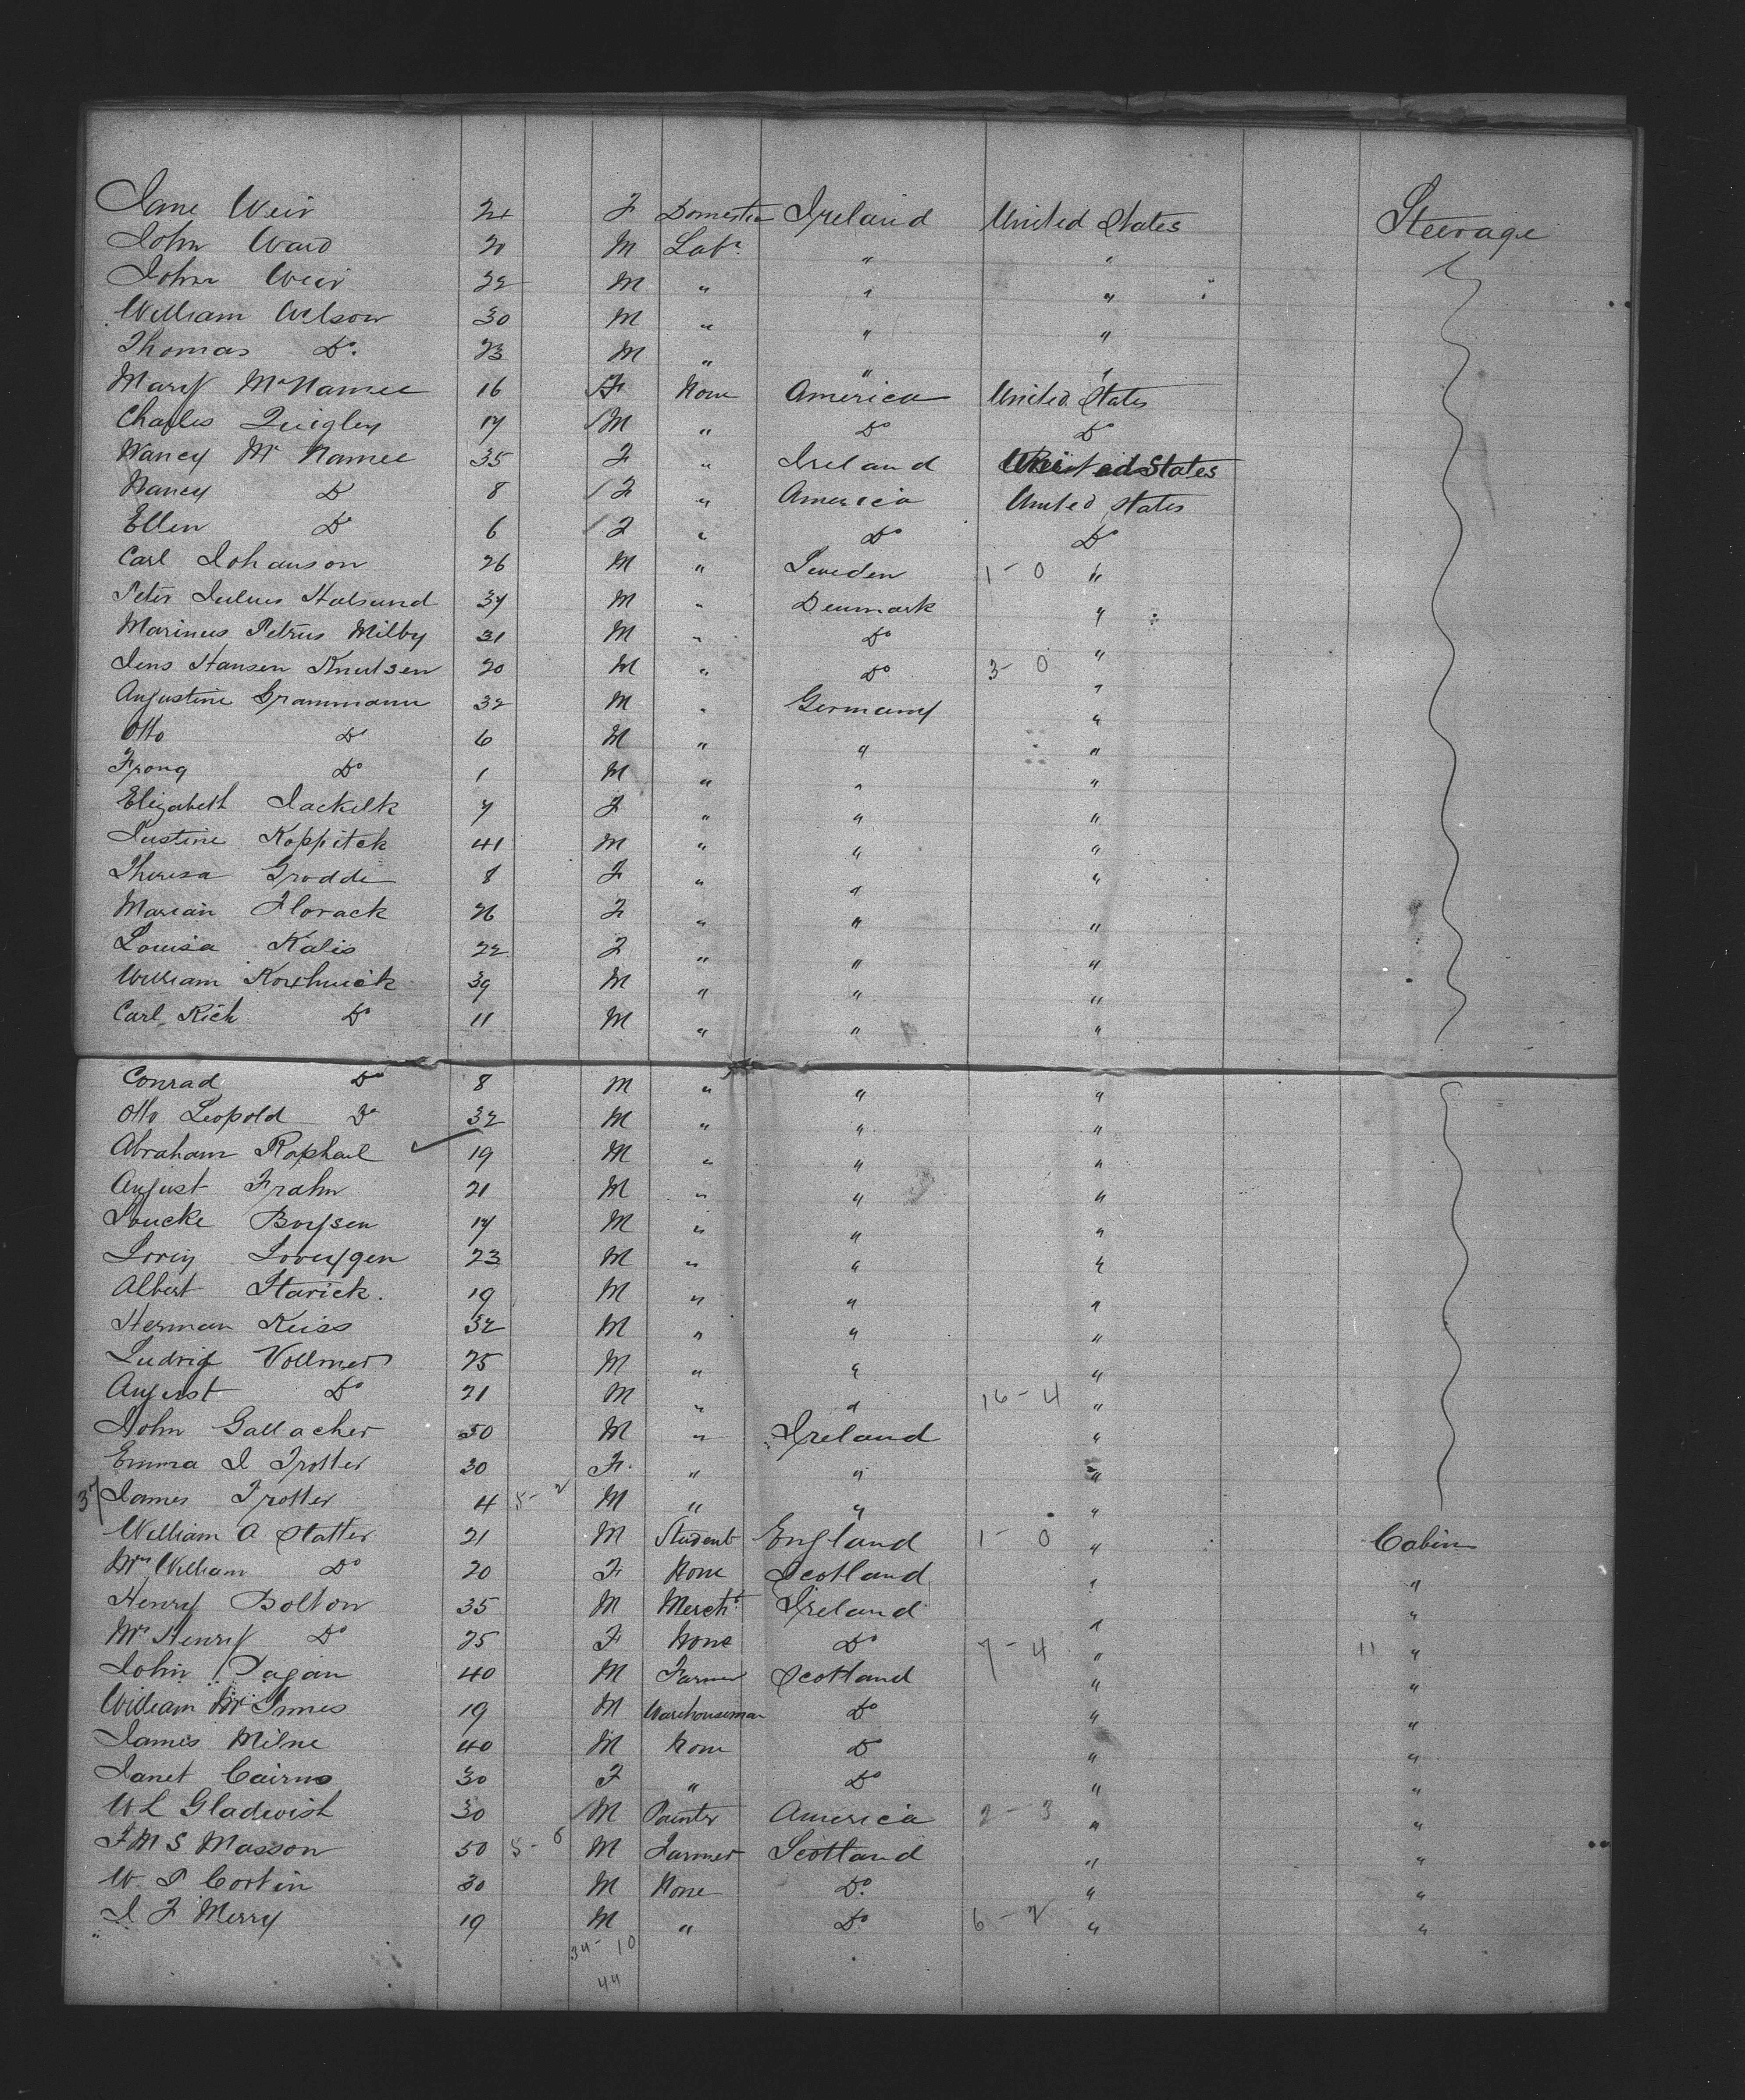 Jane Weir 24 F Domestic Ireland United States Steerage
John Ward 20 M Labr. " "
John Weir 22 M " " "
William Wilson 30 M " " "
Thomas Do. 23 M " " "
Mary McNamee 16 F None America United States
Charles Quigley 17 M " Do Do
Nancy Mc Namee 35 F " Ireland United States
Nancy Do 8 F " America United States
Ellen Do 6 F " Do Do
Carl Johanson 26 M " Sweden 1-0 "
Peter Julius Halsund 37 M " Denmark "
Marinus Petrus Milby 31 M " Do "
Jens Hansen Knutsen 20 M " Do 3-0 "
Augustine Grammann 32 M " Germany "
Otto Do 6 M " " "
Do 1 M " " "
Elizabeth 7 F " " "
Justine Koppitek 41 M " " "
Theresa Grodde 8 F " " "
Marian Florack 26 F " " "
Louisa Kalis 22 F " " "
William 39 M " " "
Carl Rich Do 11 M " " "
Conrad Do 8 M " " "
Otto Leopold Do 32 M " " "
Abraham Raphael 19 M " " "
August Frahm 21 M " " "
Boysen 17 M " " "
23 M " " "
Albert Starick. 19 M " " "
Herman Keiss 32 M " " "
Ludwig Vollmer 25 M " " "
August Do 21 M " " 16-4 "
John Gallacher 50 M " Ireland "
Emma J Trotter 30 F. " " "
37 James Trotter 4 5-2 M " " "
William A Statter 21 M Student England 1-0 " Cabin
Mrs William Do 20 F None Scotland " "
Henry Bolton 35 M Mercht. Ireland " "
Mrs Henry Do 25 F None Do 7-4 " 11 "
John Pagan 40 M Farmer Scotland " "
William McInnes 19 M Warehouseman Do " "
James Milne 40 M None Do " "
Janet Cairns 30 F " Do " "
W L Gladwish 30 M Painter America 2-3 " "
F M S Masson 50 5-6 M Farmer Scotland " "
W. J Corbin 30 M None Do. " "
J F Merry 19 M " Do 6-2 " "
34-10
44